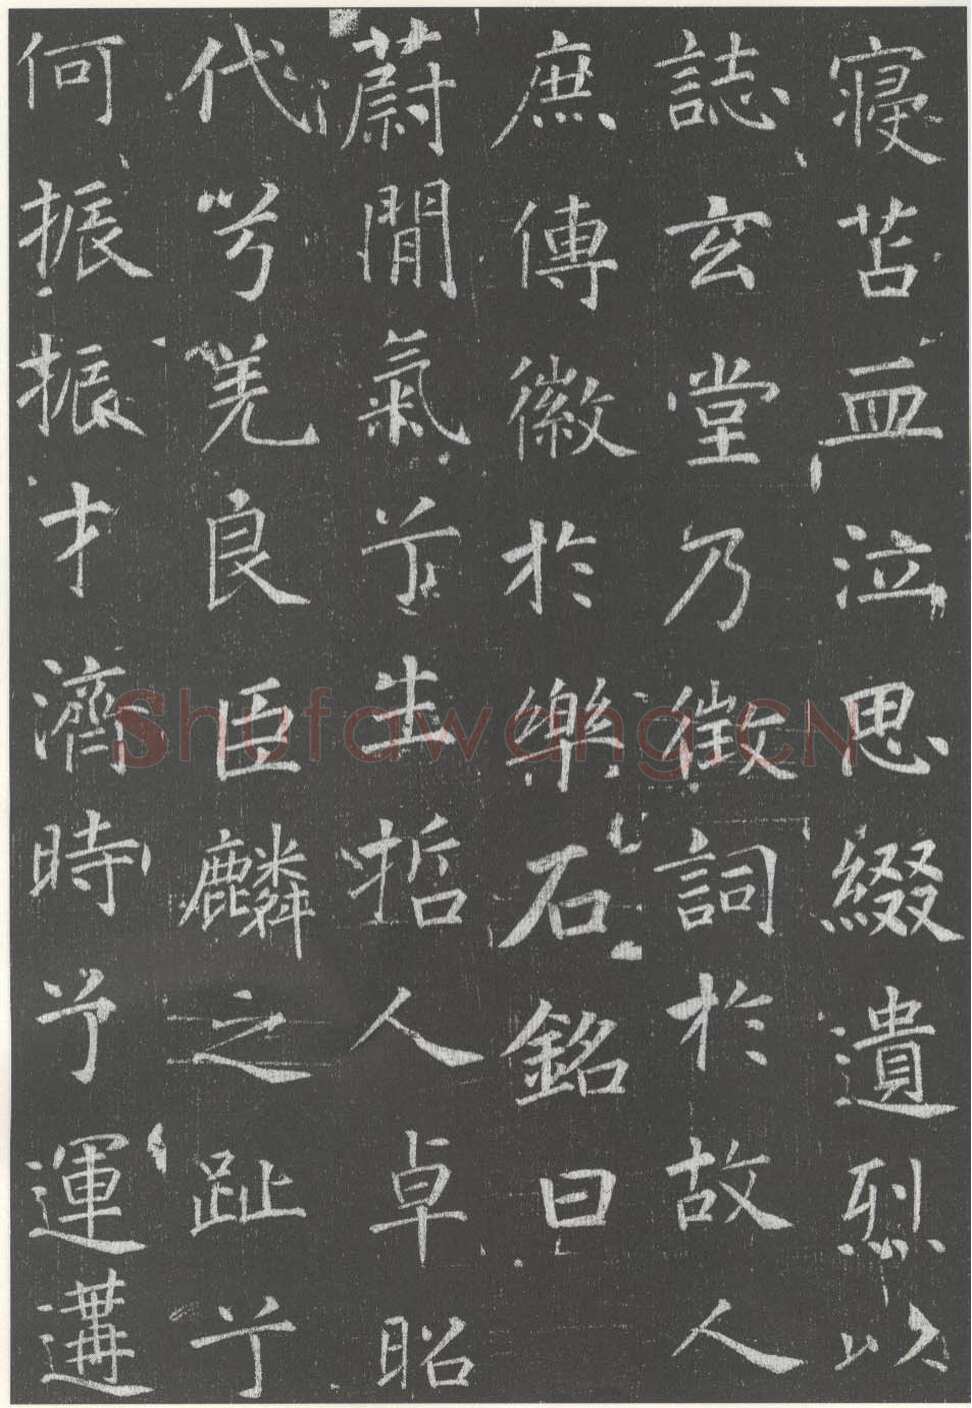 寑苫血泣思綴遺烈以
誌玄堂乃徵詞於故人
庶傳徽於樂石銘曰
蔚閒氣兮生哲人卓昭
代兮羌良臣麟之趾兮
何振振才濟時兮運遘
Shufawang.CN